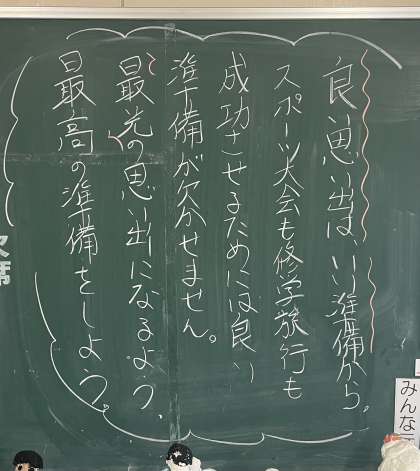 良い思い出は、いい準備から。
スポーツ大会も修学旅行も
成功させるためには良い
準備が欠かせません。
最光の思い出になるよう、
最高の準備をしよう。
欠席
みんな